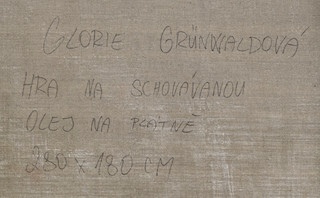 GLORIE GRÜNWALDOVÁ
HRA NA SCHOVÁVANOU
OLEJ NA PLÁTNĚ
280 x 180 CM